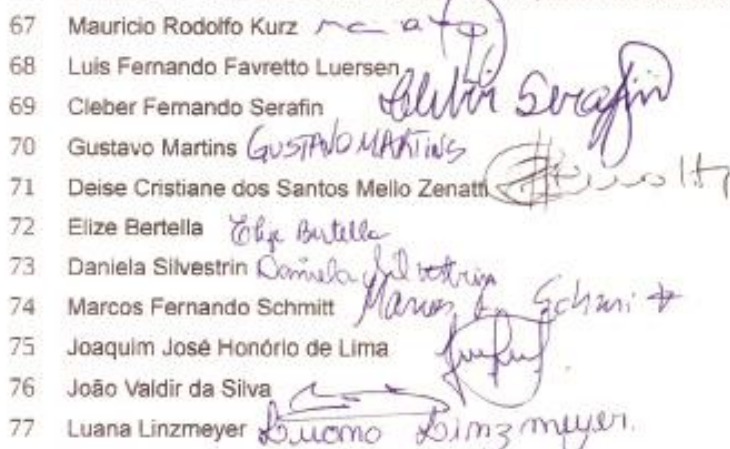 67 Mauricio Rodolfo Kurz
68 Luis Fernando Favretto Luersen
69 Cleber Fernando Serafin Cleber Serafin
70 Gustavo Martins GUSTAVO MARTINS
71 Deise Cristiane dos Santos Mello Zenatti
72 Elize Bertella Elize Bertella
73 Daniela Silvestrin Daniela Silvestrin
74 Marcos Fernando Schmitt Marcos F. Schmitt
75 Joaquim José Honório de Lima
76 João Valdir da Silva
77 Luana Linzmeyer Luana Linzmeyer.